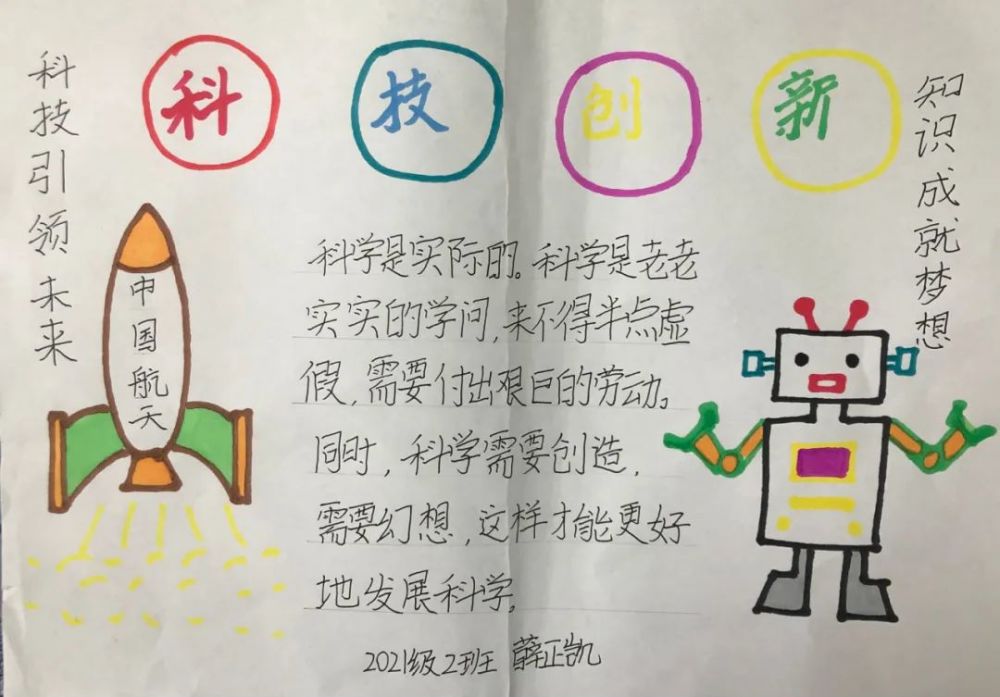 科技创新
科技引领未来
知识成就梦想
中国航天
科学是实际的。科学是老老
实实的学问,来不得半点虚
假,需要付出艰巨的劳动。
同时,科学需要创造,
需要幻想,这样才能更好
地发展科学。
2021级2班 薛正凯